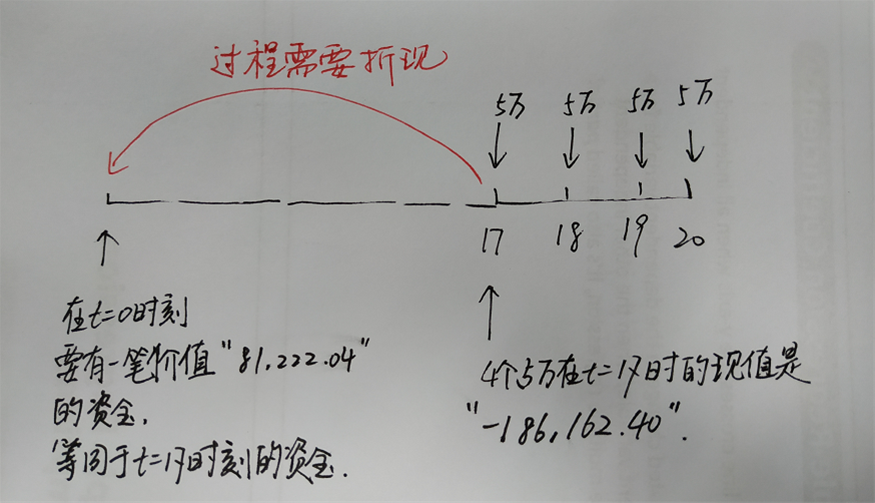 过程需要折现
5万 5万 5万 5万
17 18 19 20
在t=0时刻
要有一笔价值"81,222.04"
的资金,
等同于t=17时刻的资金.
4个5万在t=17时的现值是
"-186,162.40".